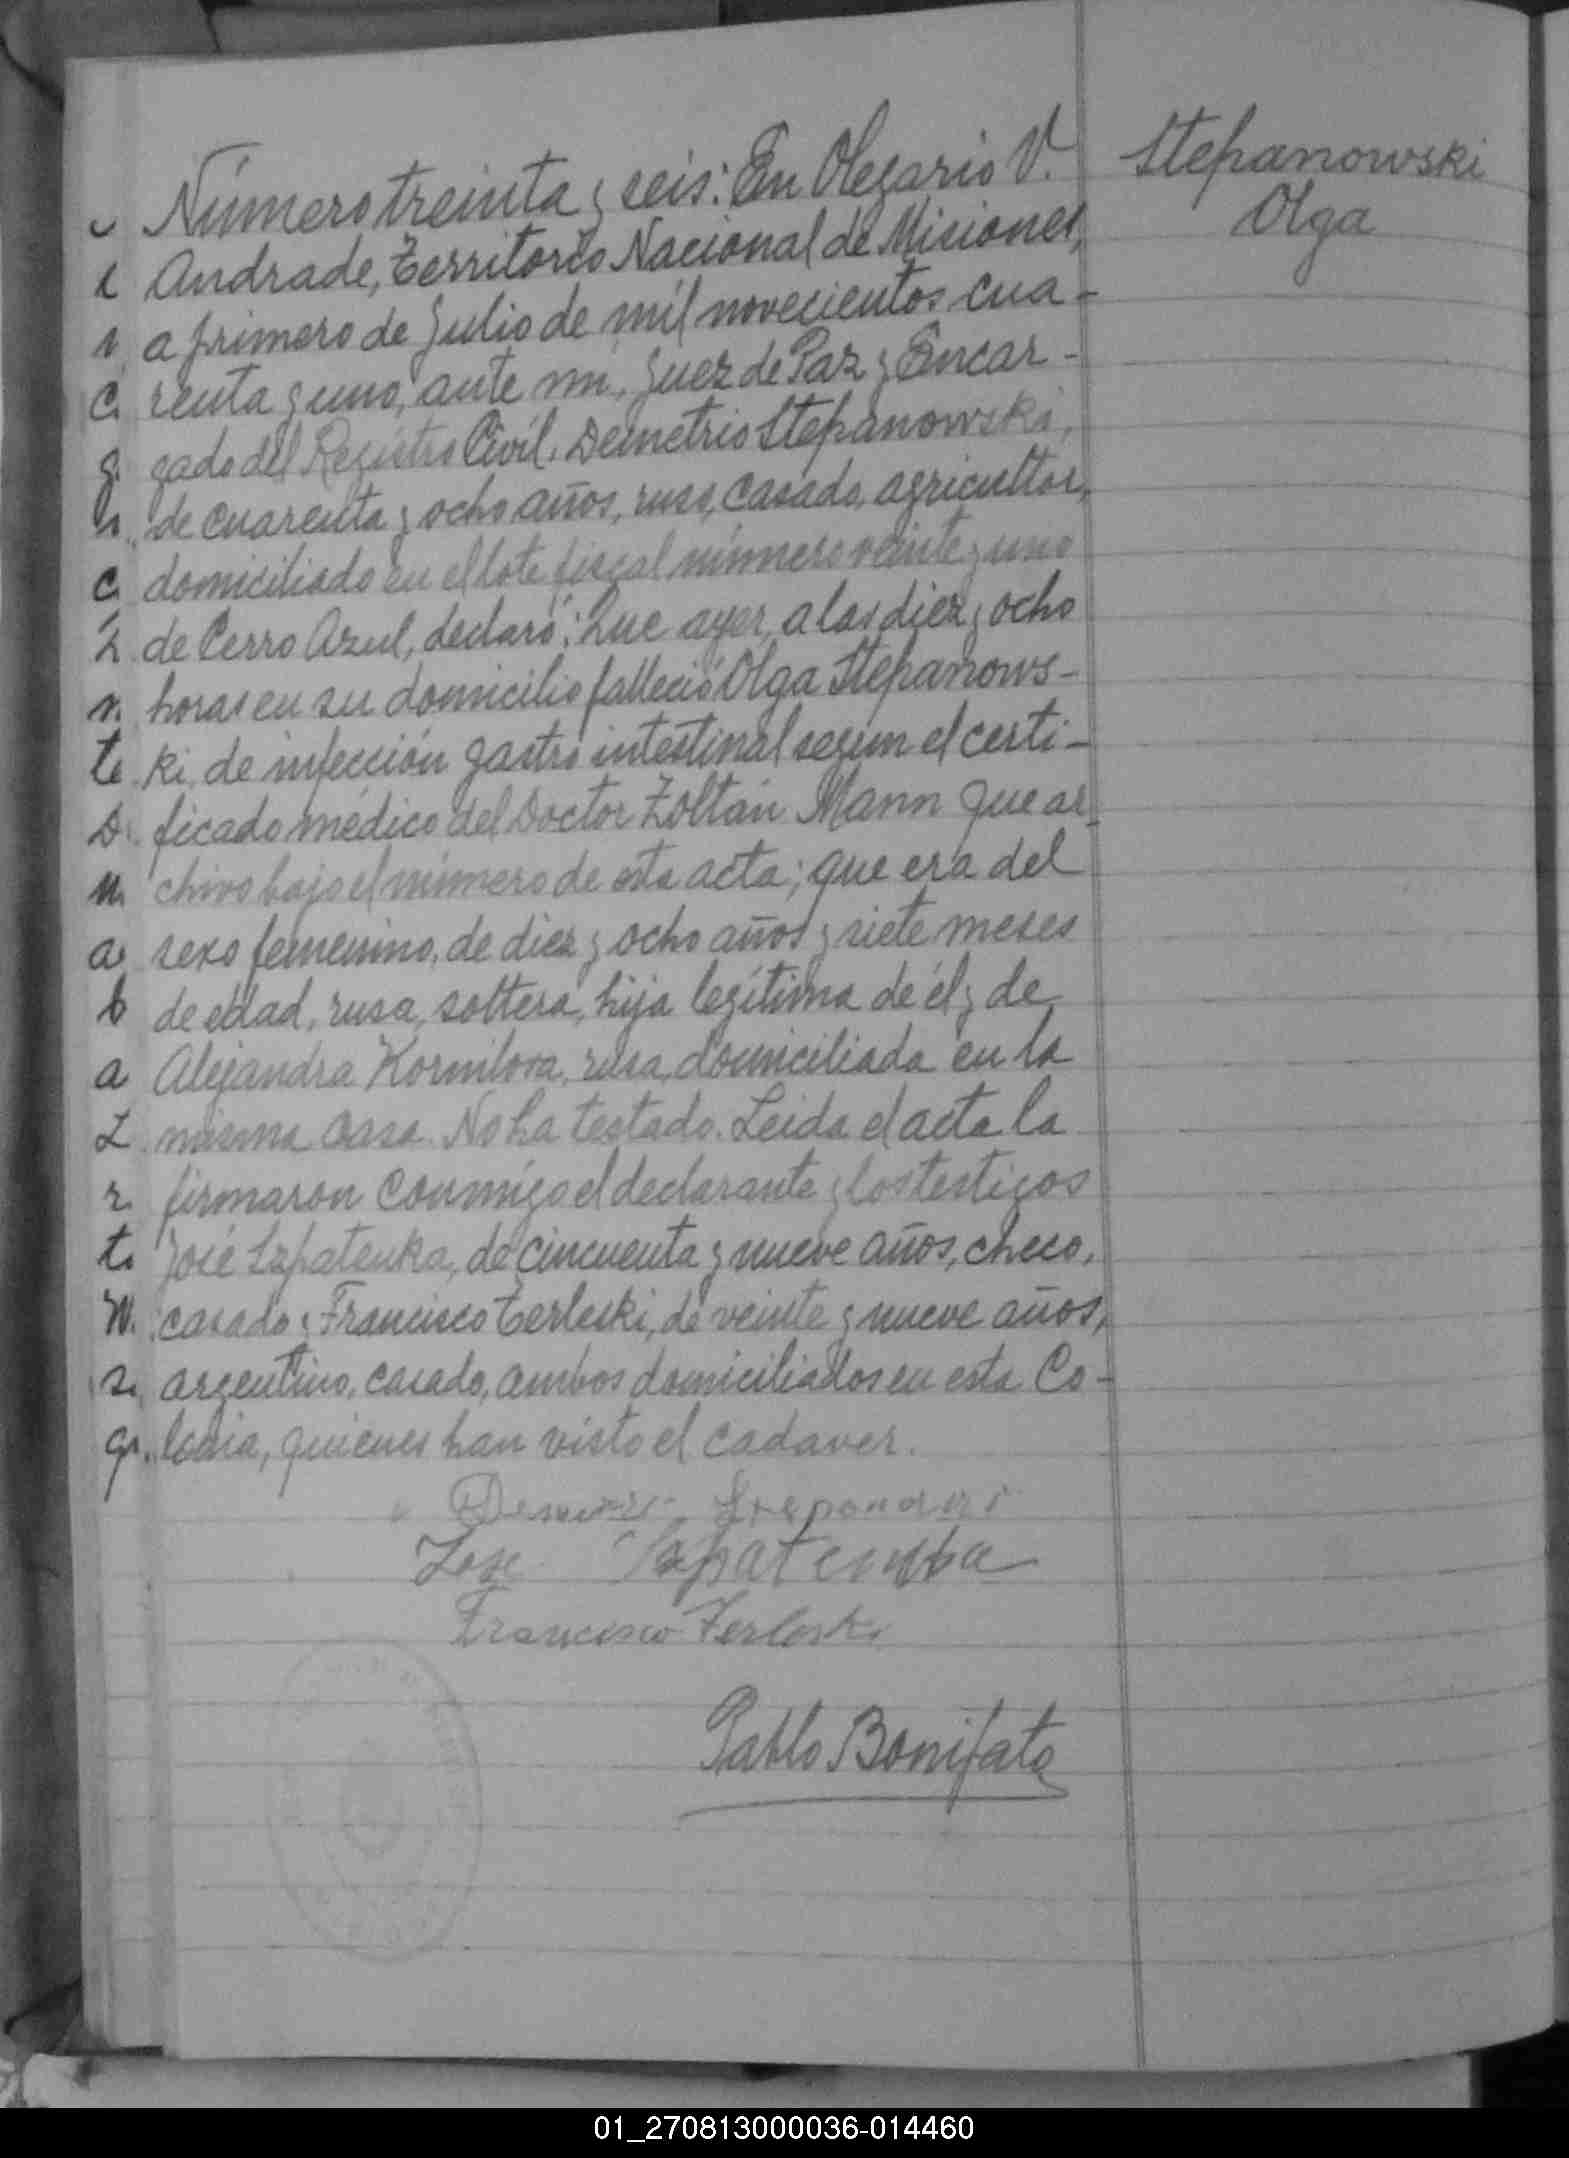 Número treinta y seis: En Olegario V.
Andrade, Territorio Nacional de Misiones,
a primero de Julio de mil novecientos cua-
renta y uno, ante mi, Juez de Paz y Encar-
gado del Registro Civil, Demetrio Stepanowski,
de cuarenta y ocho años, ruso, casado, agricultor,
domiciliado en el lote fiscal número veinte y uno
de Cerro Azul, declaró: Que ayer, a las diez y ocho
horas en su domicilio falleció Olga Stepanows-
ki, de infección gastro intestinal según el certi-
ficado médico del Doctor Zoltán Mann que ar-
chivo bajo el número de esta acta; que era del
sexo femenino, de diez y ocho años y siete meses
de edad, rusa, soltera, hija legítima de él y de
Alejandra Kornilova, rusa, domiciliada en la
misma casa. No ha testado. Leida el acta la
firmaron conmigo el declarante y los testigos
José Sapatenka, de cincuenta y nueve años, checo,
casado y Francisco Terleski, de veinte y nueve años,
argentino, casado, ambos domiciliados en esta Co-
lonia, quienes han visto el cadaver.
Jose
Francisco Terleski
Pablo Bonifato
Stepanowski
Olga
01_270813000036-014460